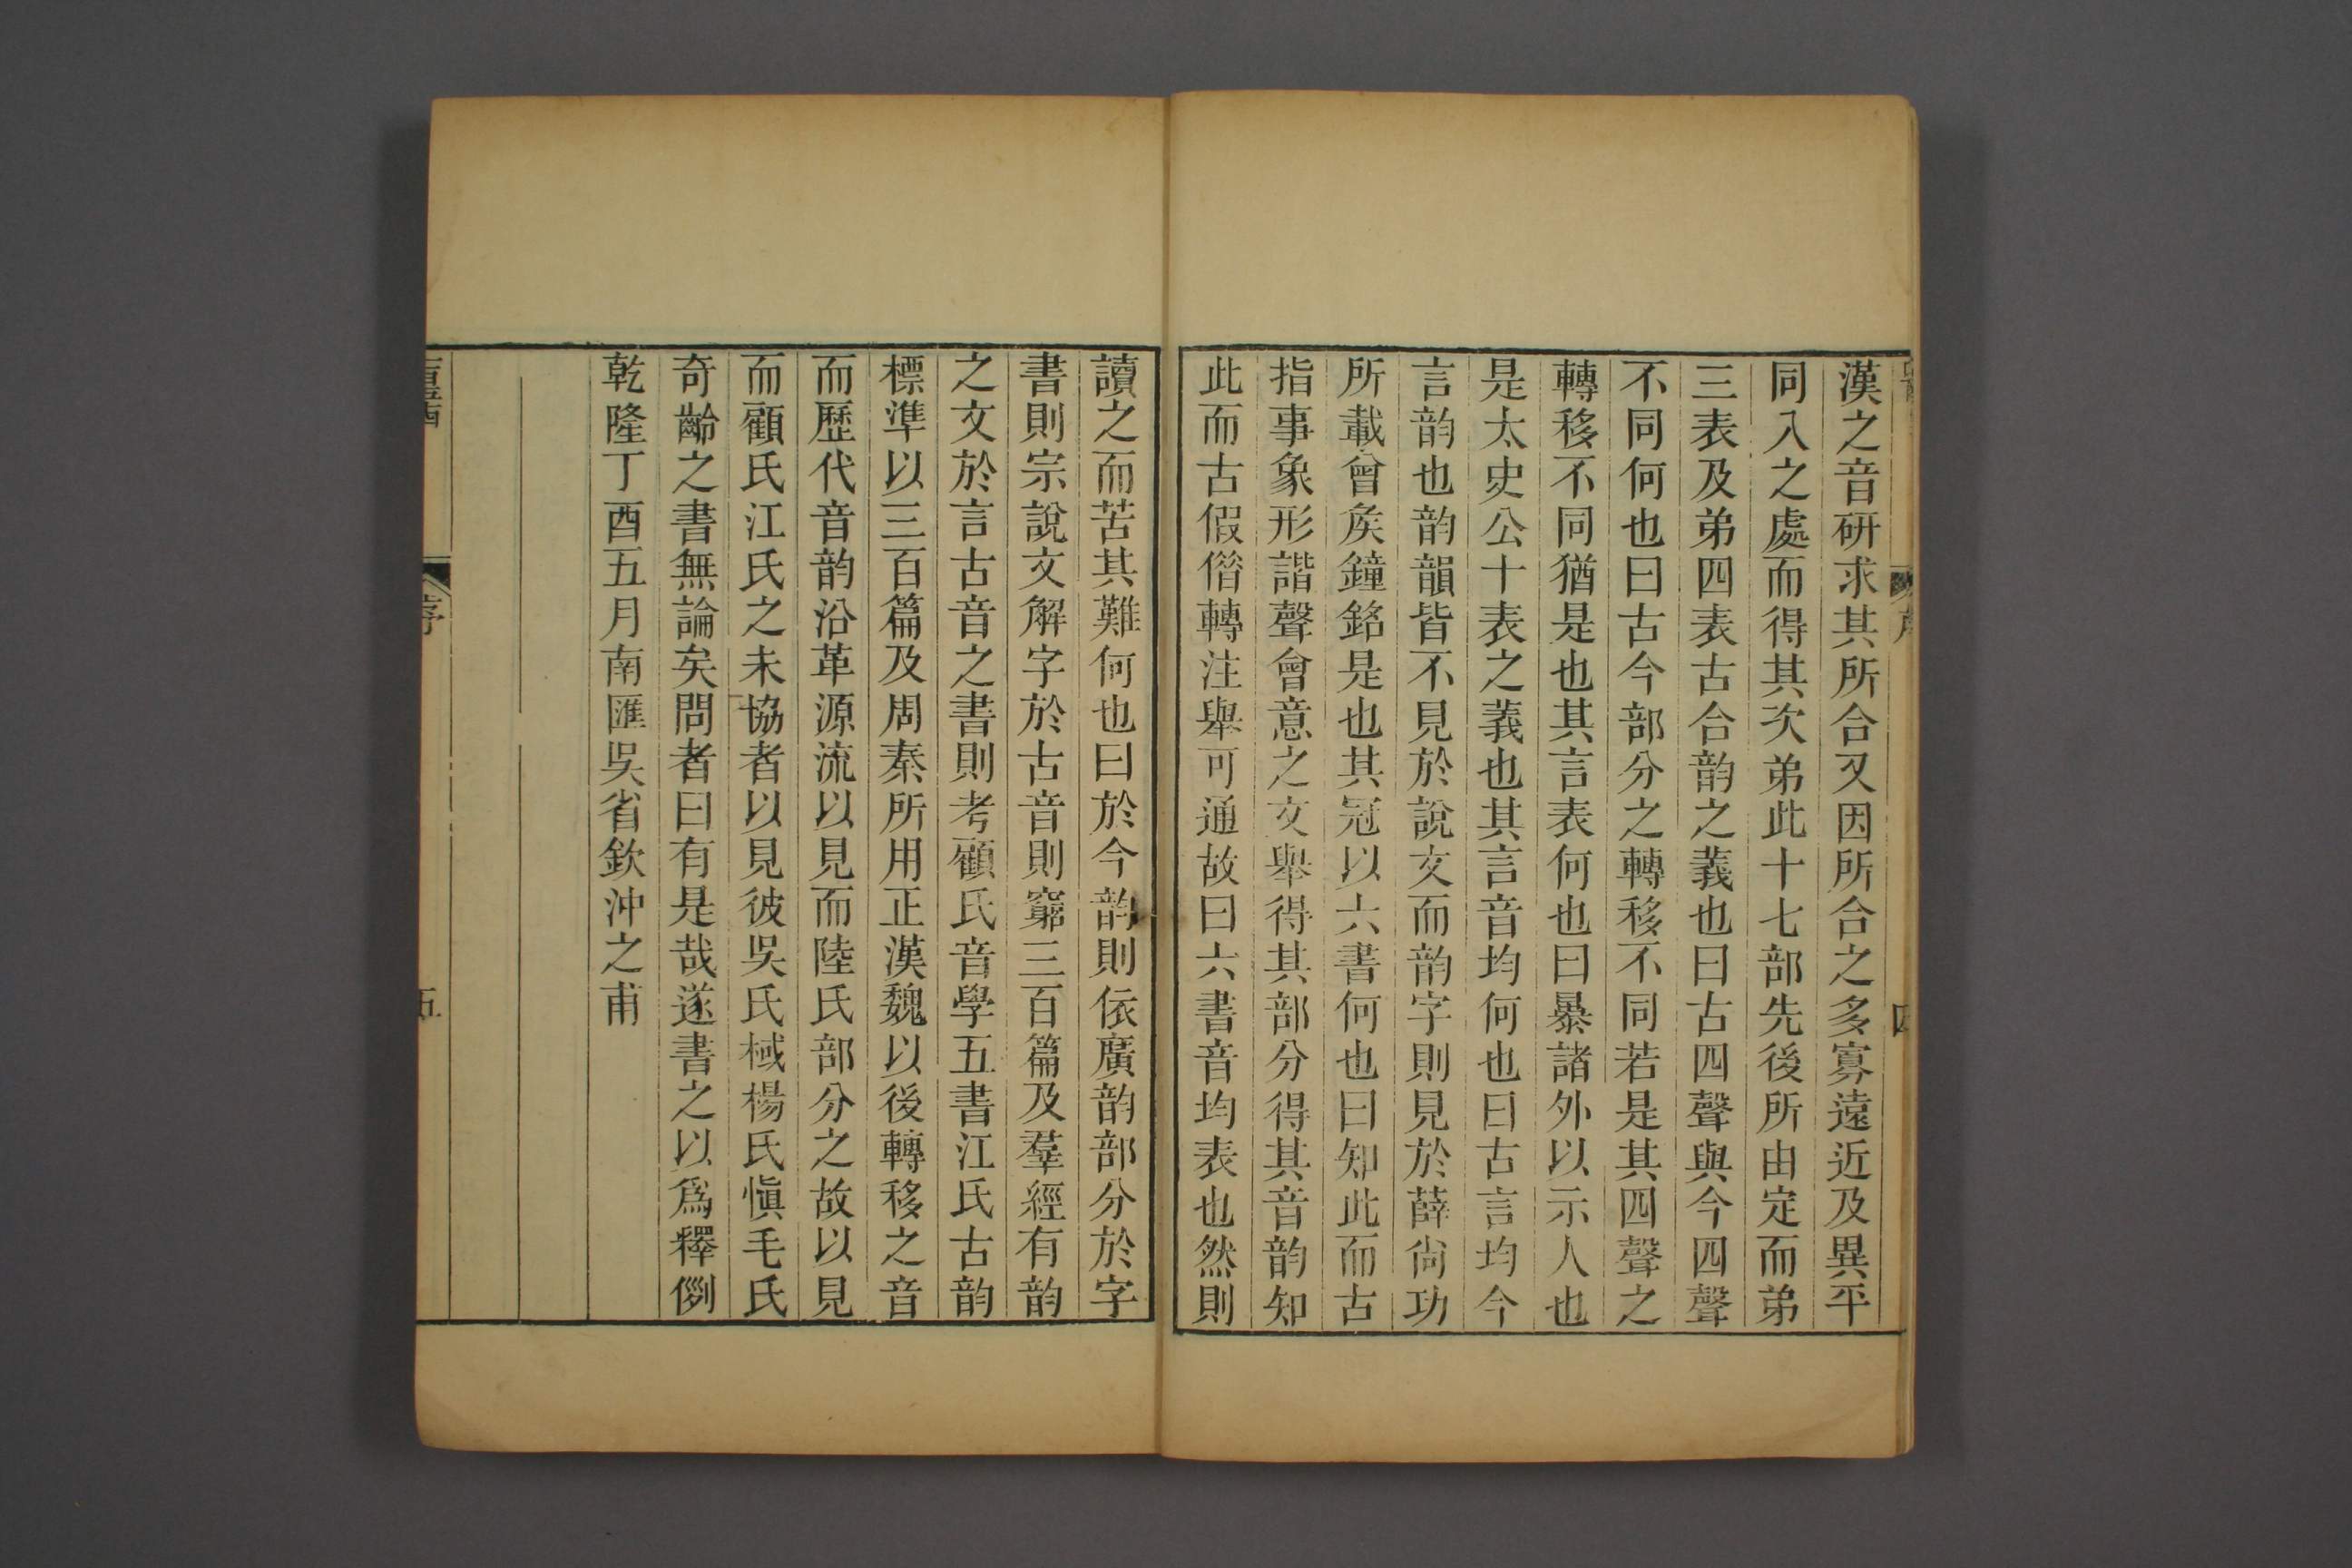 漢之音研求其所合又因所合之多寡遠近及異平
同入之處而得其次弟此十七部先後所由定而弟
三表及弟四表古合韵之義也曰古四聲與今四聲
不同何也曰古今部分之轉移不同若是其四聲之
轉移不同猶是也其言表何也曰暴諸外以示人也
是太史公十表之義也其言音均何也曰古言均今
言韵也韵韻皆不見於說文而韵字則見於薛尙功
所載曾矦鐘銘是也其冠以六書何也曰知此而古
指事象形諧聲會意之文舉得其部分得其音韵知
此而古假借轉注舉可通故曰六書音均表也然則
讀之而苦其難何也曰於今韵則依廣韵部分於字
書則宗說文解字於古音則窮三百篇及羣經有韵
之文於言古音之書則考顧氏音學五書江氏古韵
標準以三百篇及周秦所用正漢魏以後轉移之音
而歷代音韵沿革源流以見而陸氏部分之故以見
而顧氏江氏之未協者以見彼吳氏棫楊氏愼毛氏
奇齡之書無論矣問者曰有是哉遂書之以爲釋例
乾隆丁酉五月南匯吳省欽沖之甫
序
五